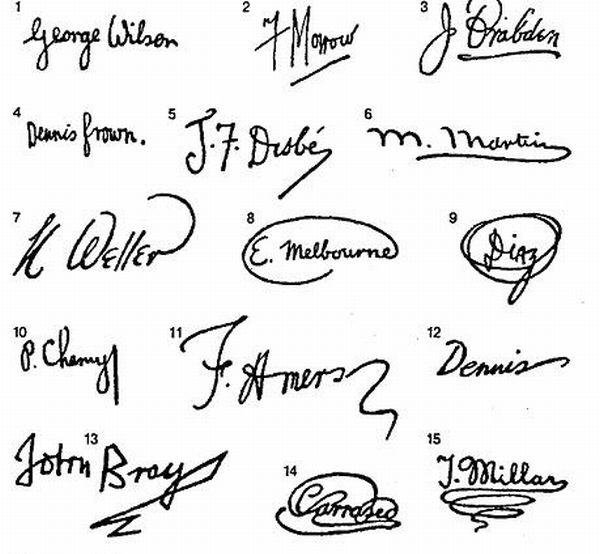 1 George Wilson
2 F Morrow
3 J Brabden
4 Dennis Brown.
5 J.F. Dubé
6 M. Martin
7 H Weller
8 E. Melbourne
9 Diaz
10 P. Chemy
11 F. Amers
12 Dennis
13 John Bray
14 Carrasco
15 J. Millar